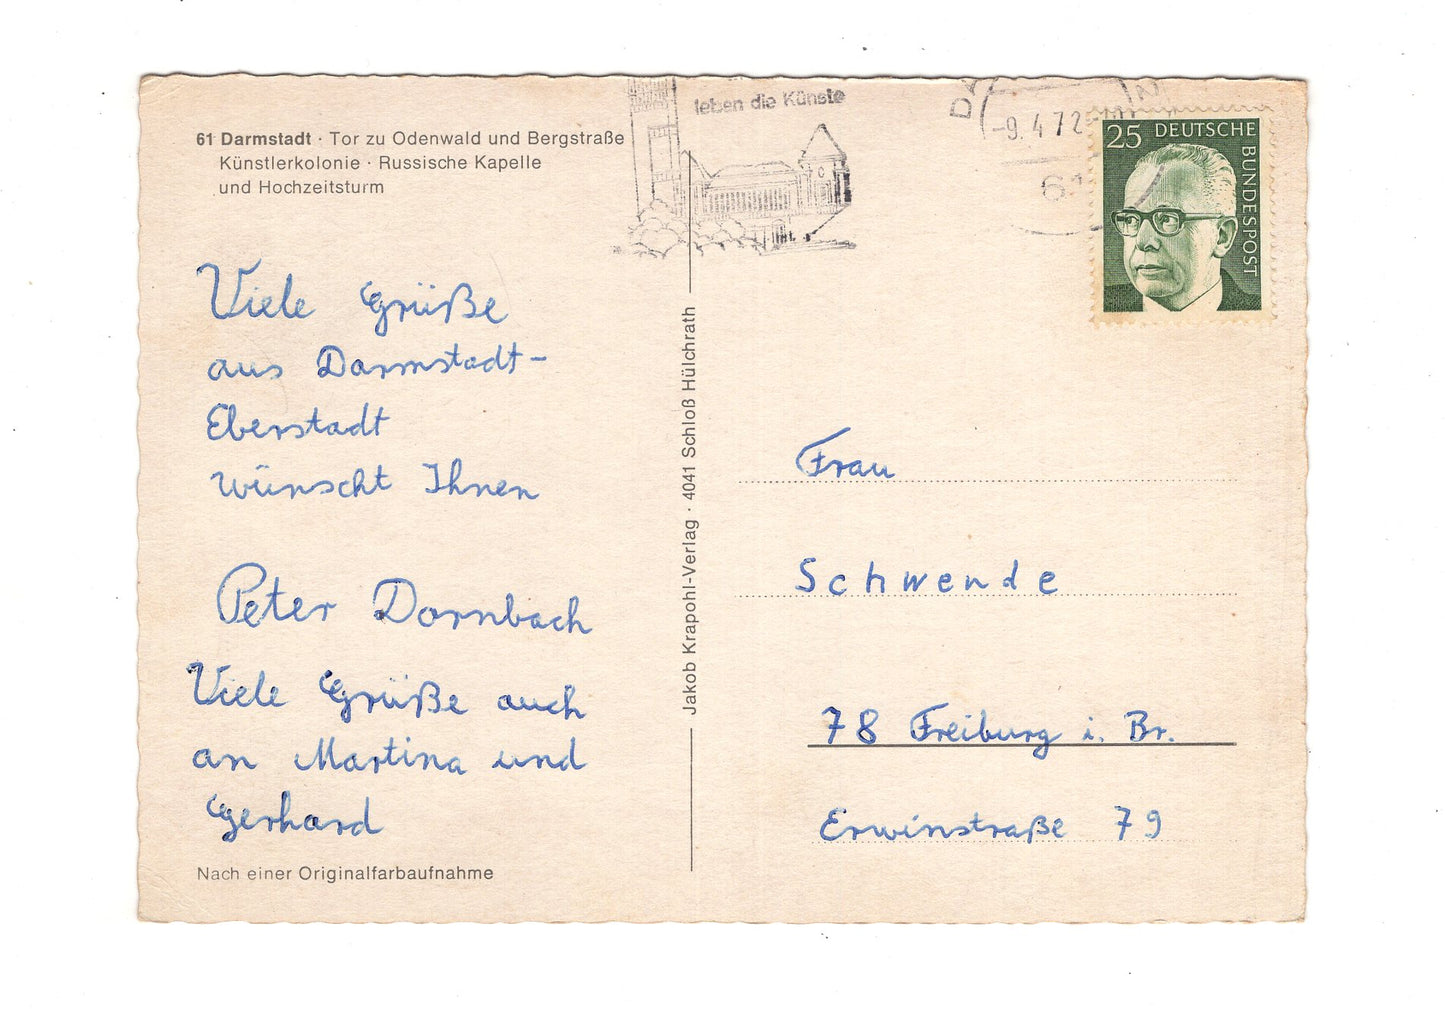 61 Darmstadt · Tor zu Odenwald und Bergstraße
Künstlerkolonie · Russische Kapelle
und Hochzeitsturm
leben die Künste
-9.4.72
61
25 DEUTSCHE BUNDESPOST
Viele Grüße
aus Darmstadt-
Eberstadt
wünscht Ihnen
Peter Dornbach
Viele Grüße auch
an Martina und
Gerhard
Nach einer Originalfarbaufnahme
Jakob Krapohl-Verlag · 4041 Schloß Hülchrath
Frau
Schwende
78 Freiburg i. Br.
Erwinstraße 79